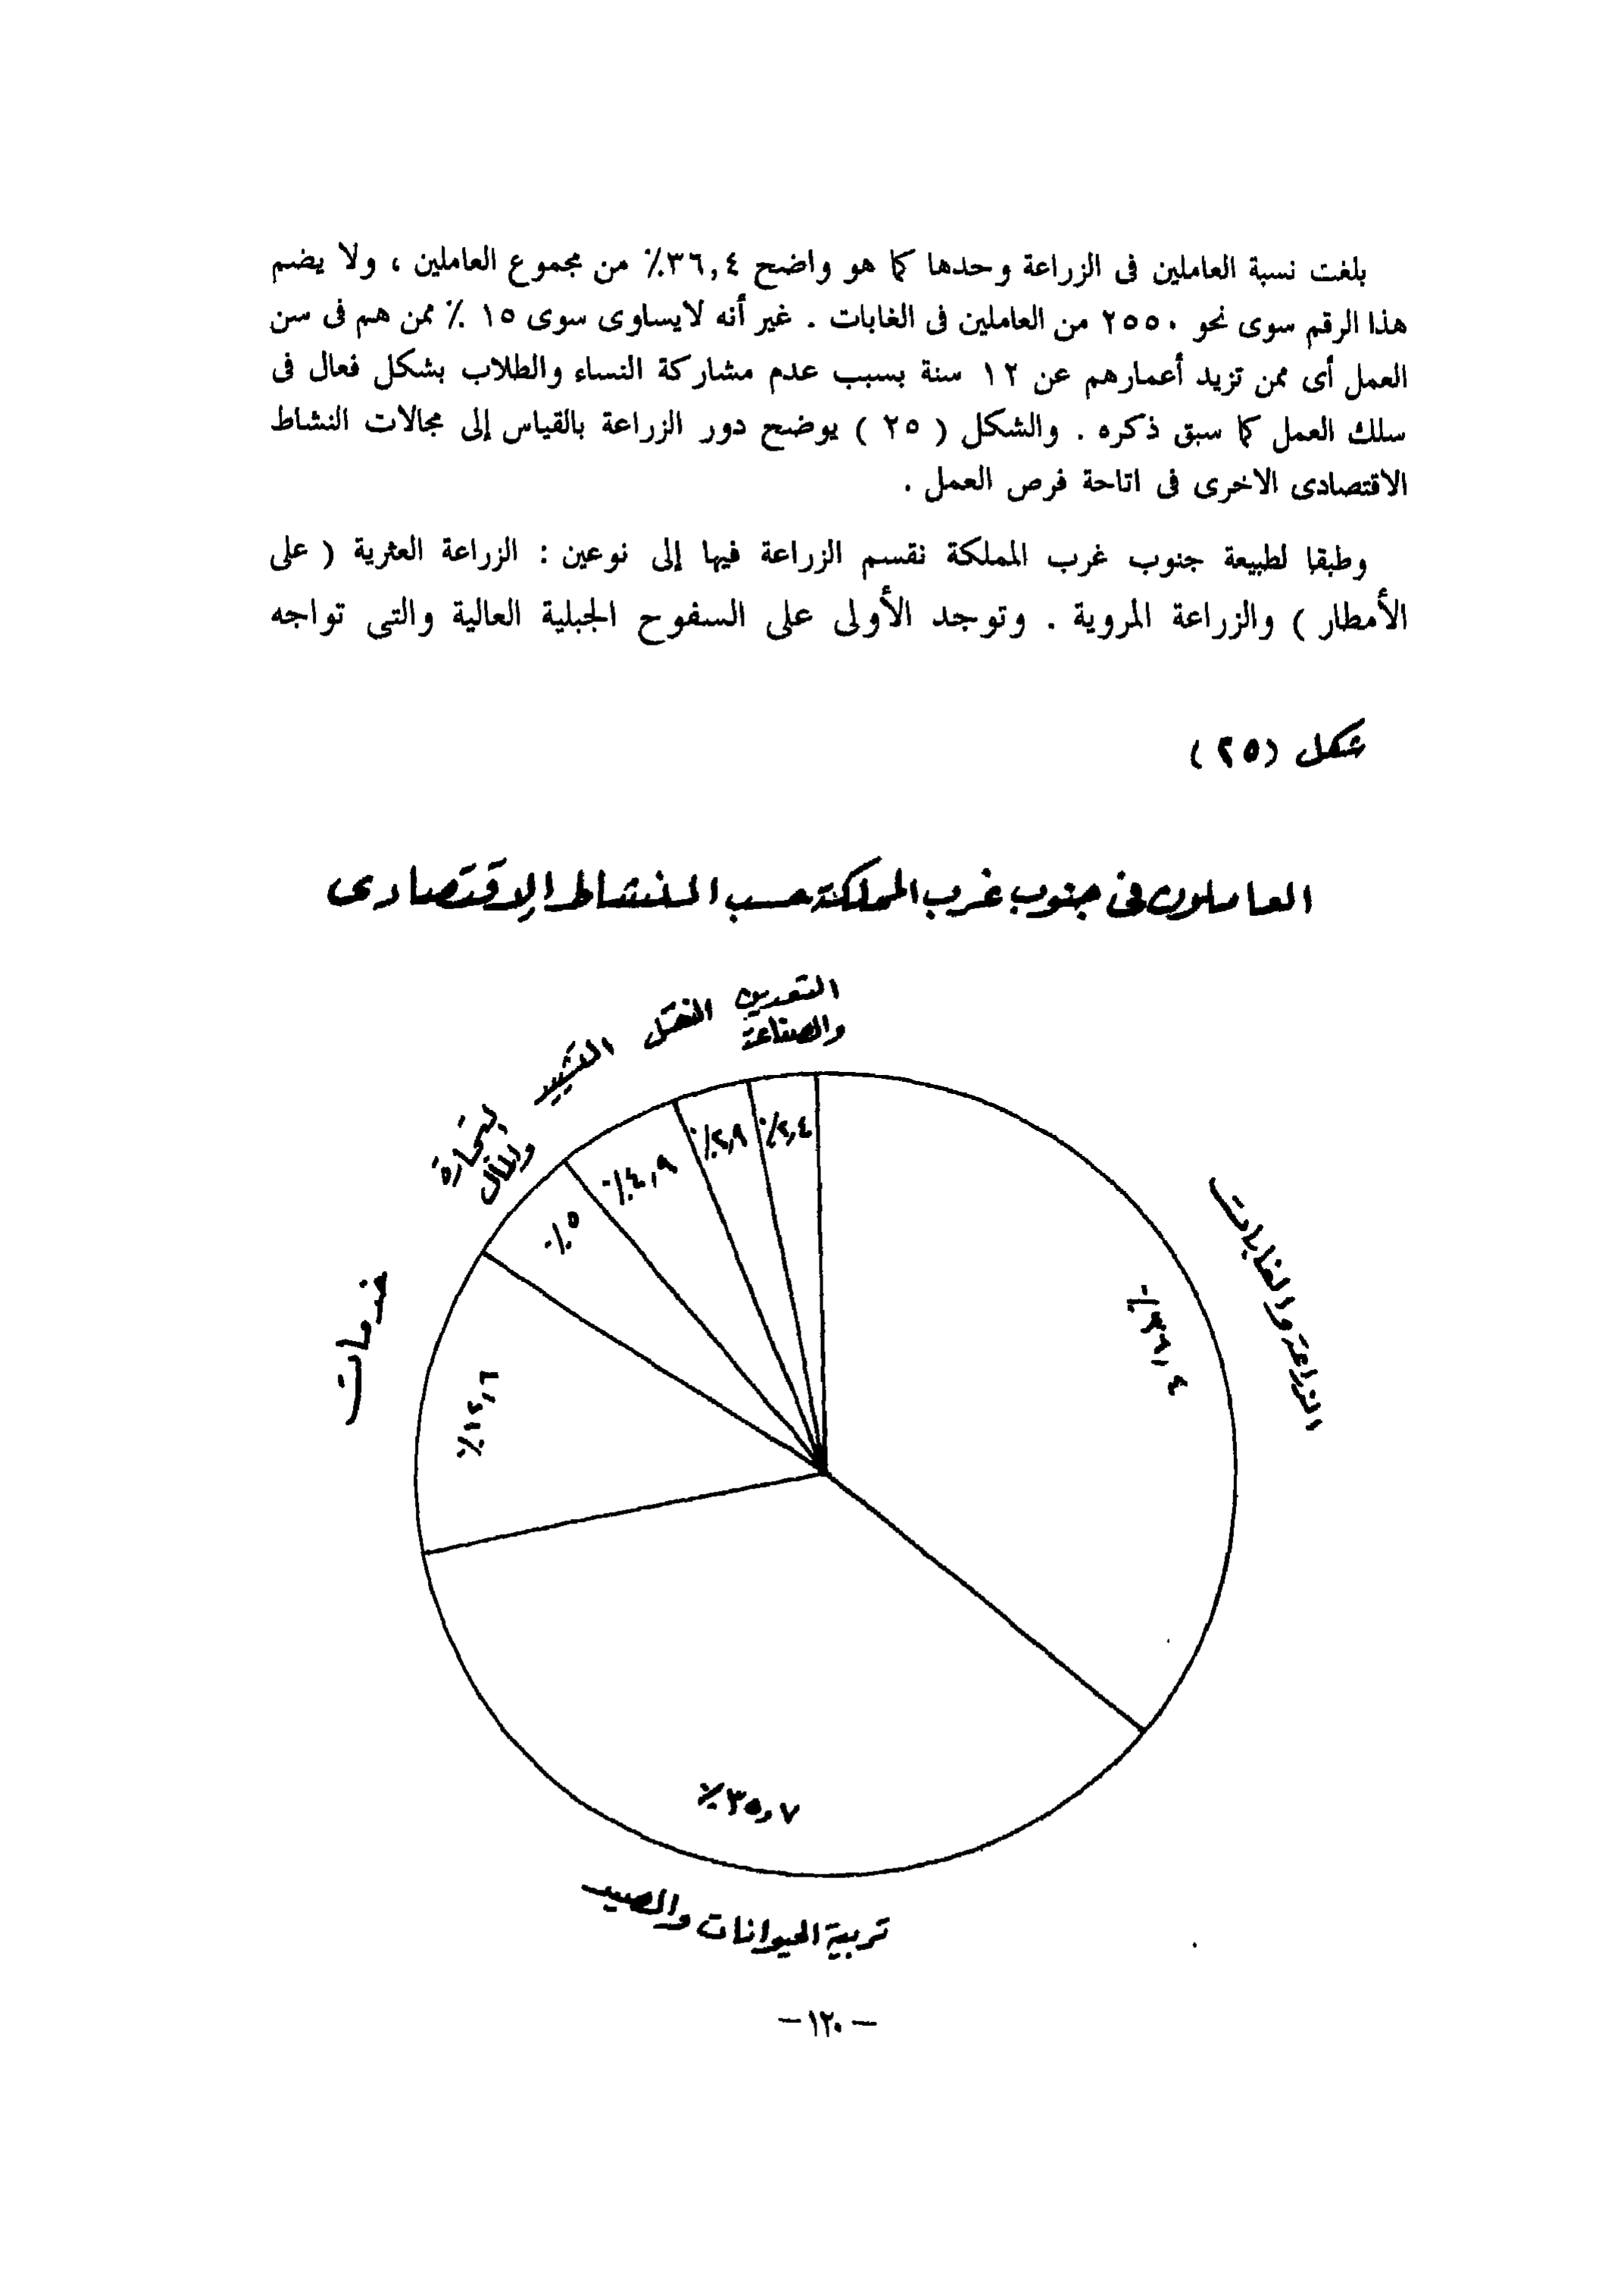 بلغت نسبة العاملين فى الزراعة وحدها كما هو واضح ٣٦,٤٪ من مجموع العاملين ، ولا يضم
هذا الرقم سوى نحو ٢٥٥٠ من العاملين فى الغابات . غير أنه لايساوى سوى ١٥ ٪ ممن هم فى سن
العمل أى ممن تزيد أعمارهم عن ١٢ سنة بسبب عدم مشاركة النساء والطلاب بشكل فعال فى
سلك العمل كما سبق ذكره . والشكل ( ٢٥ ) يوضح دور الزراعة بالقياس إلى مجالات النشاط
الاقتصادى الاخرى فى اتاحة فرص العمل .
وطبقا لطبيعة جنوب غرب المملكة نقسم الزراعة فيها إلى نوعين : الزراعة العثرية ( على
الأمطار ) والزراعة المروية . وتوجد الأولى على السفوح الجبلية العالية والتى تواجه
شكل (٢٥)
العاملون فى جنوب غرب المملكة حسب النشاط الاقتصادى
التعدين
والصناعة
النقل
التشييد
التجارة
والمال
خدمات
الزراعة والغابات
٪٢,٤
٪٢,٩
٪٤,٩
٪٥
٪١٢,٦
٪٣٦,٤
٪٣٥,٧
تربية الحيوانات والصيد
– ١٢٠ –